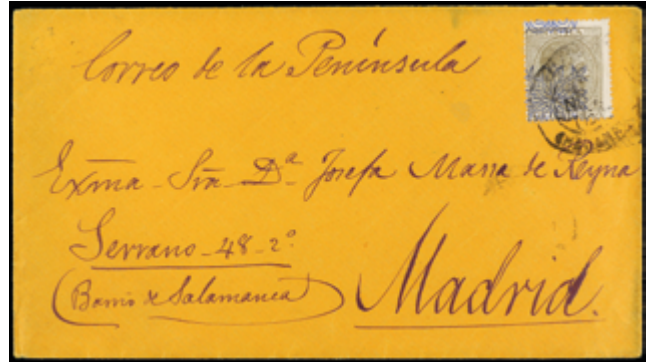 Correo de la Península
Exma Sra Dª Josefa Massa de Reyna
Serrano - 48 - 2º
(Barrio de Salamanca)
Madrid.